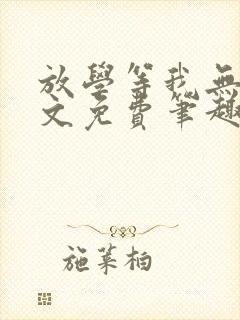 放學等我無
文免費筆趣
施葉柏